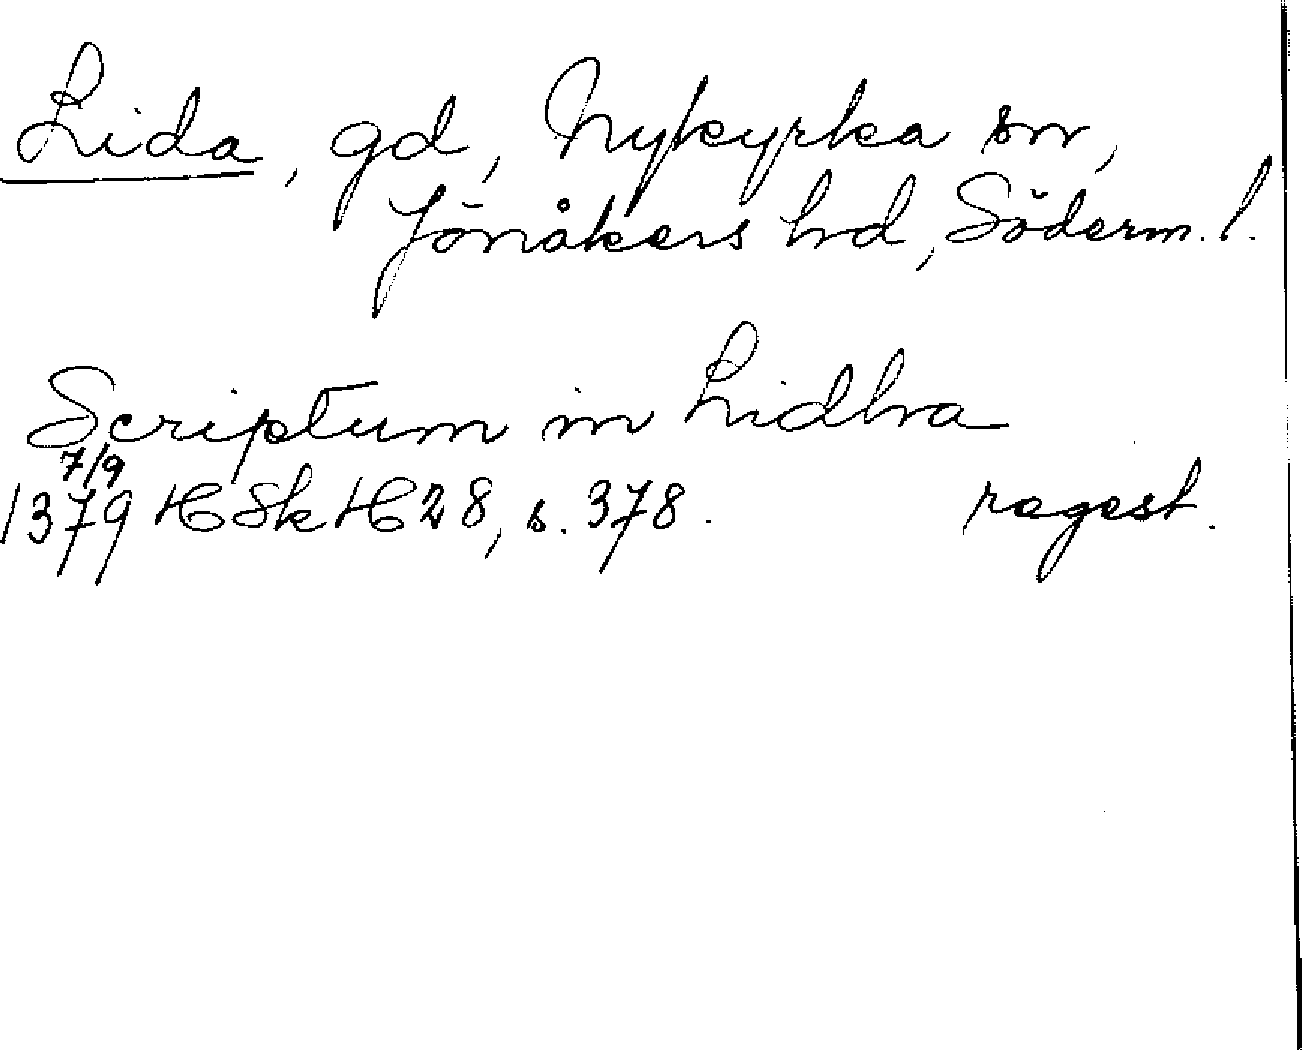 Lida, gd, Nykyrka sn,
Jönåkers hd, Söderm. l.
Scriptum in Lidha
7/9
1379 HSk H 28, s. 378. regest.